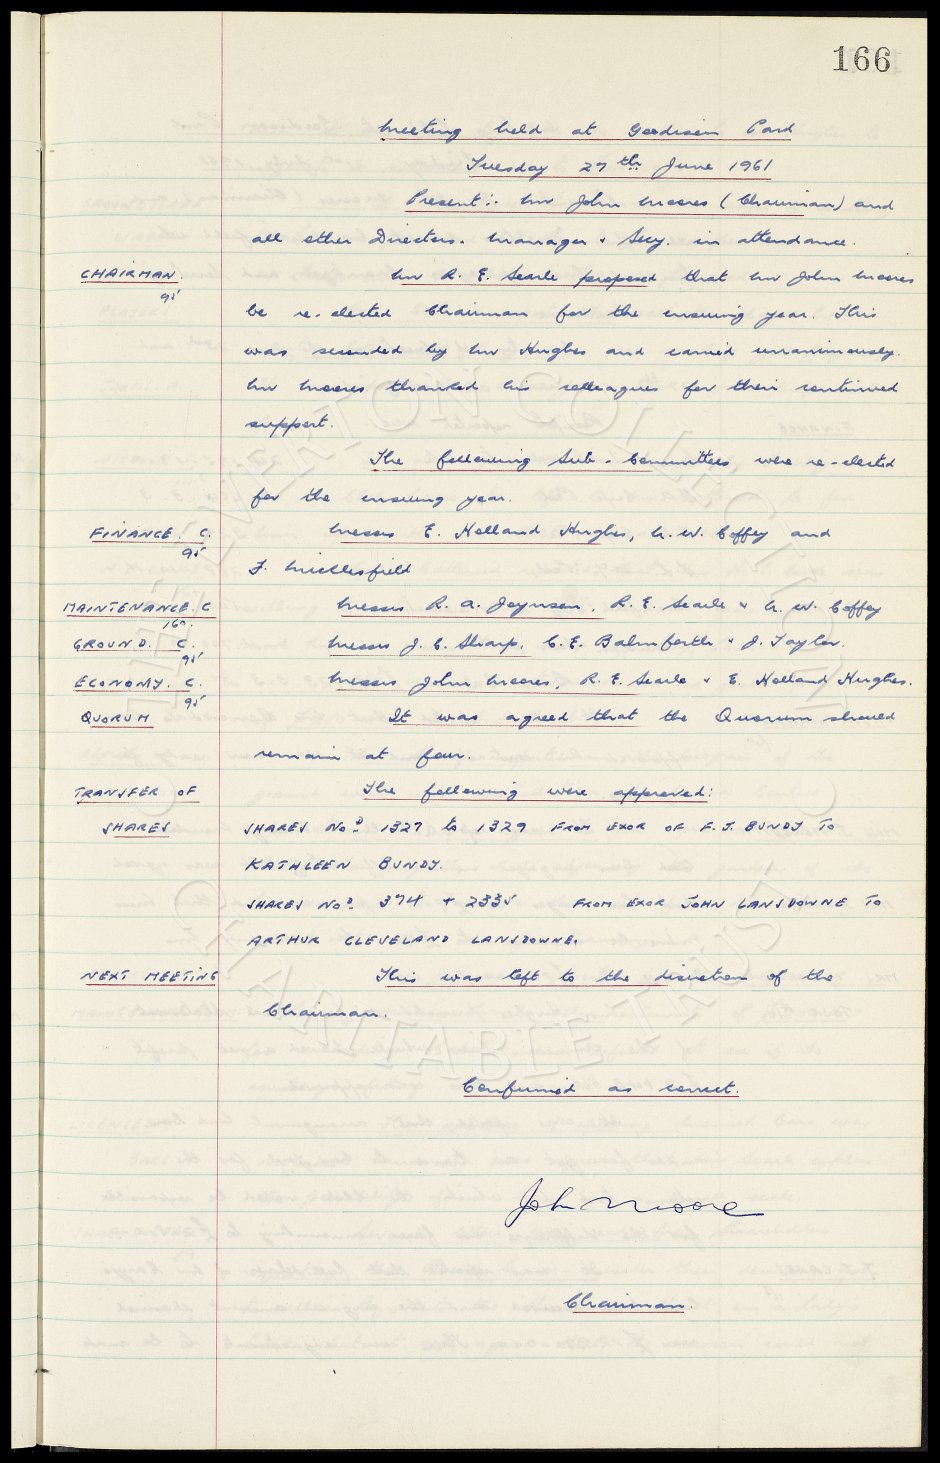 166
Meeting held at Goodison Park
Tuesday 27th June 1961
Present:- Mr John Moores (Chairman) and
all other Directors. Manager & Secy. in attendance.
CHAIRMAN. Mr R. E. Searle proposed that Mr John Moores
95
be re-elected Chairman for the ensuing year. This
was seconded by Mr Hughes and carried unanimously.
Mr Moores thanked his colleagues for their continued
support.
The following Sub-Committees were re-elected
for the ensuing year.
FINANCE. C. Messrs E. Holland Hughes, C. W. Coffey and
95
F. Micklesfield
MAINTENANCE. C Messrs R. A. Joynson, R. E. Searle & C. W. Coffey
160.
GROUND. C. Messrs J. C. Sharp, C. E. Balmforth & J. Taylor.
95
ECONOMY. C. Messrs John Moores, R. E. Searle & E. Holland Hughes.
95
QUORUM It was agreed that the Quorum should
remain at four.
TRANSFER OF The following were approved:
SHARES SHARES NOS 1327 to 1329 FROM EXOR OF F. J. BUNDY TO
KATHLEEN BUNDY.
SHARES NOS 374 + 2335 FROM EXOR JOHN LANSDOWNE TO
ARTHUR CLEVELAND LANSDOWNE.
NEXT MEETING This was left to the discretion of the
Chairman.
Confirmed as correct.
John Moores
Chairman.
THE EVERTON COLLECTION
CHARITABLE TRUST